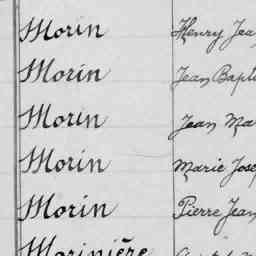 Morin Henry Jea
Morin Jean Bapti
Morin Jean Ma
Morin Marie Jose
Morin Pierre Jean
Morinière